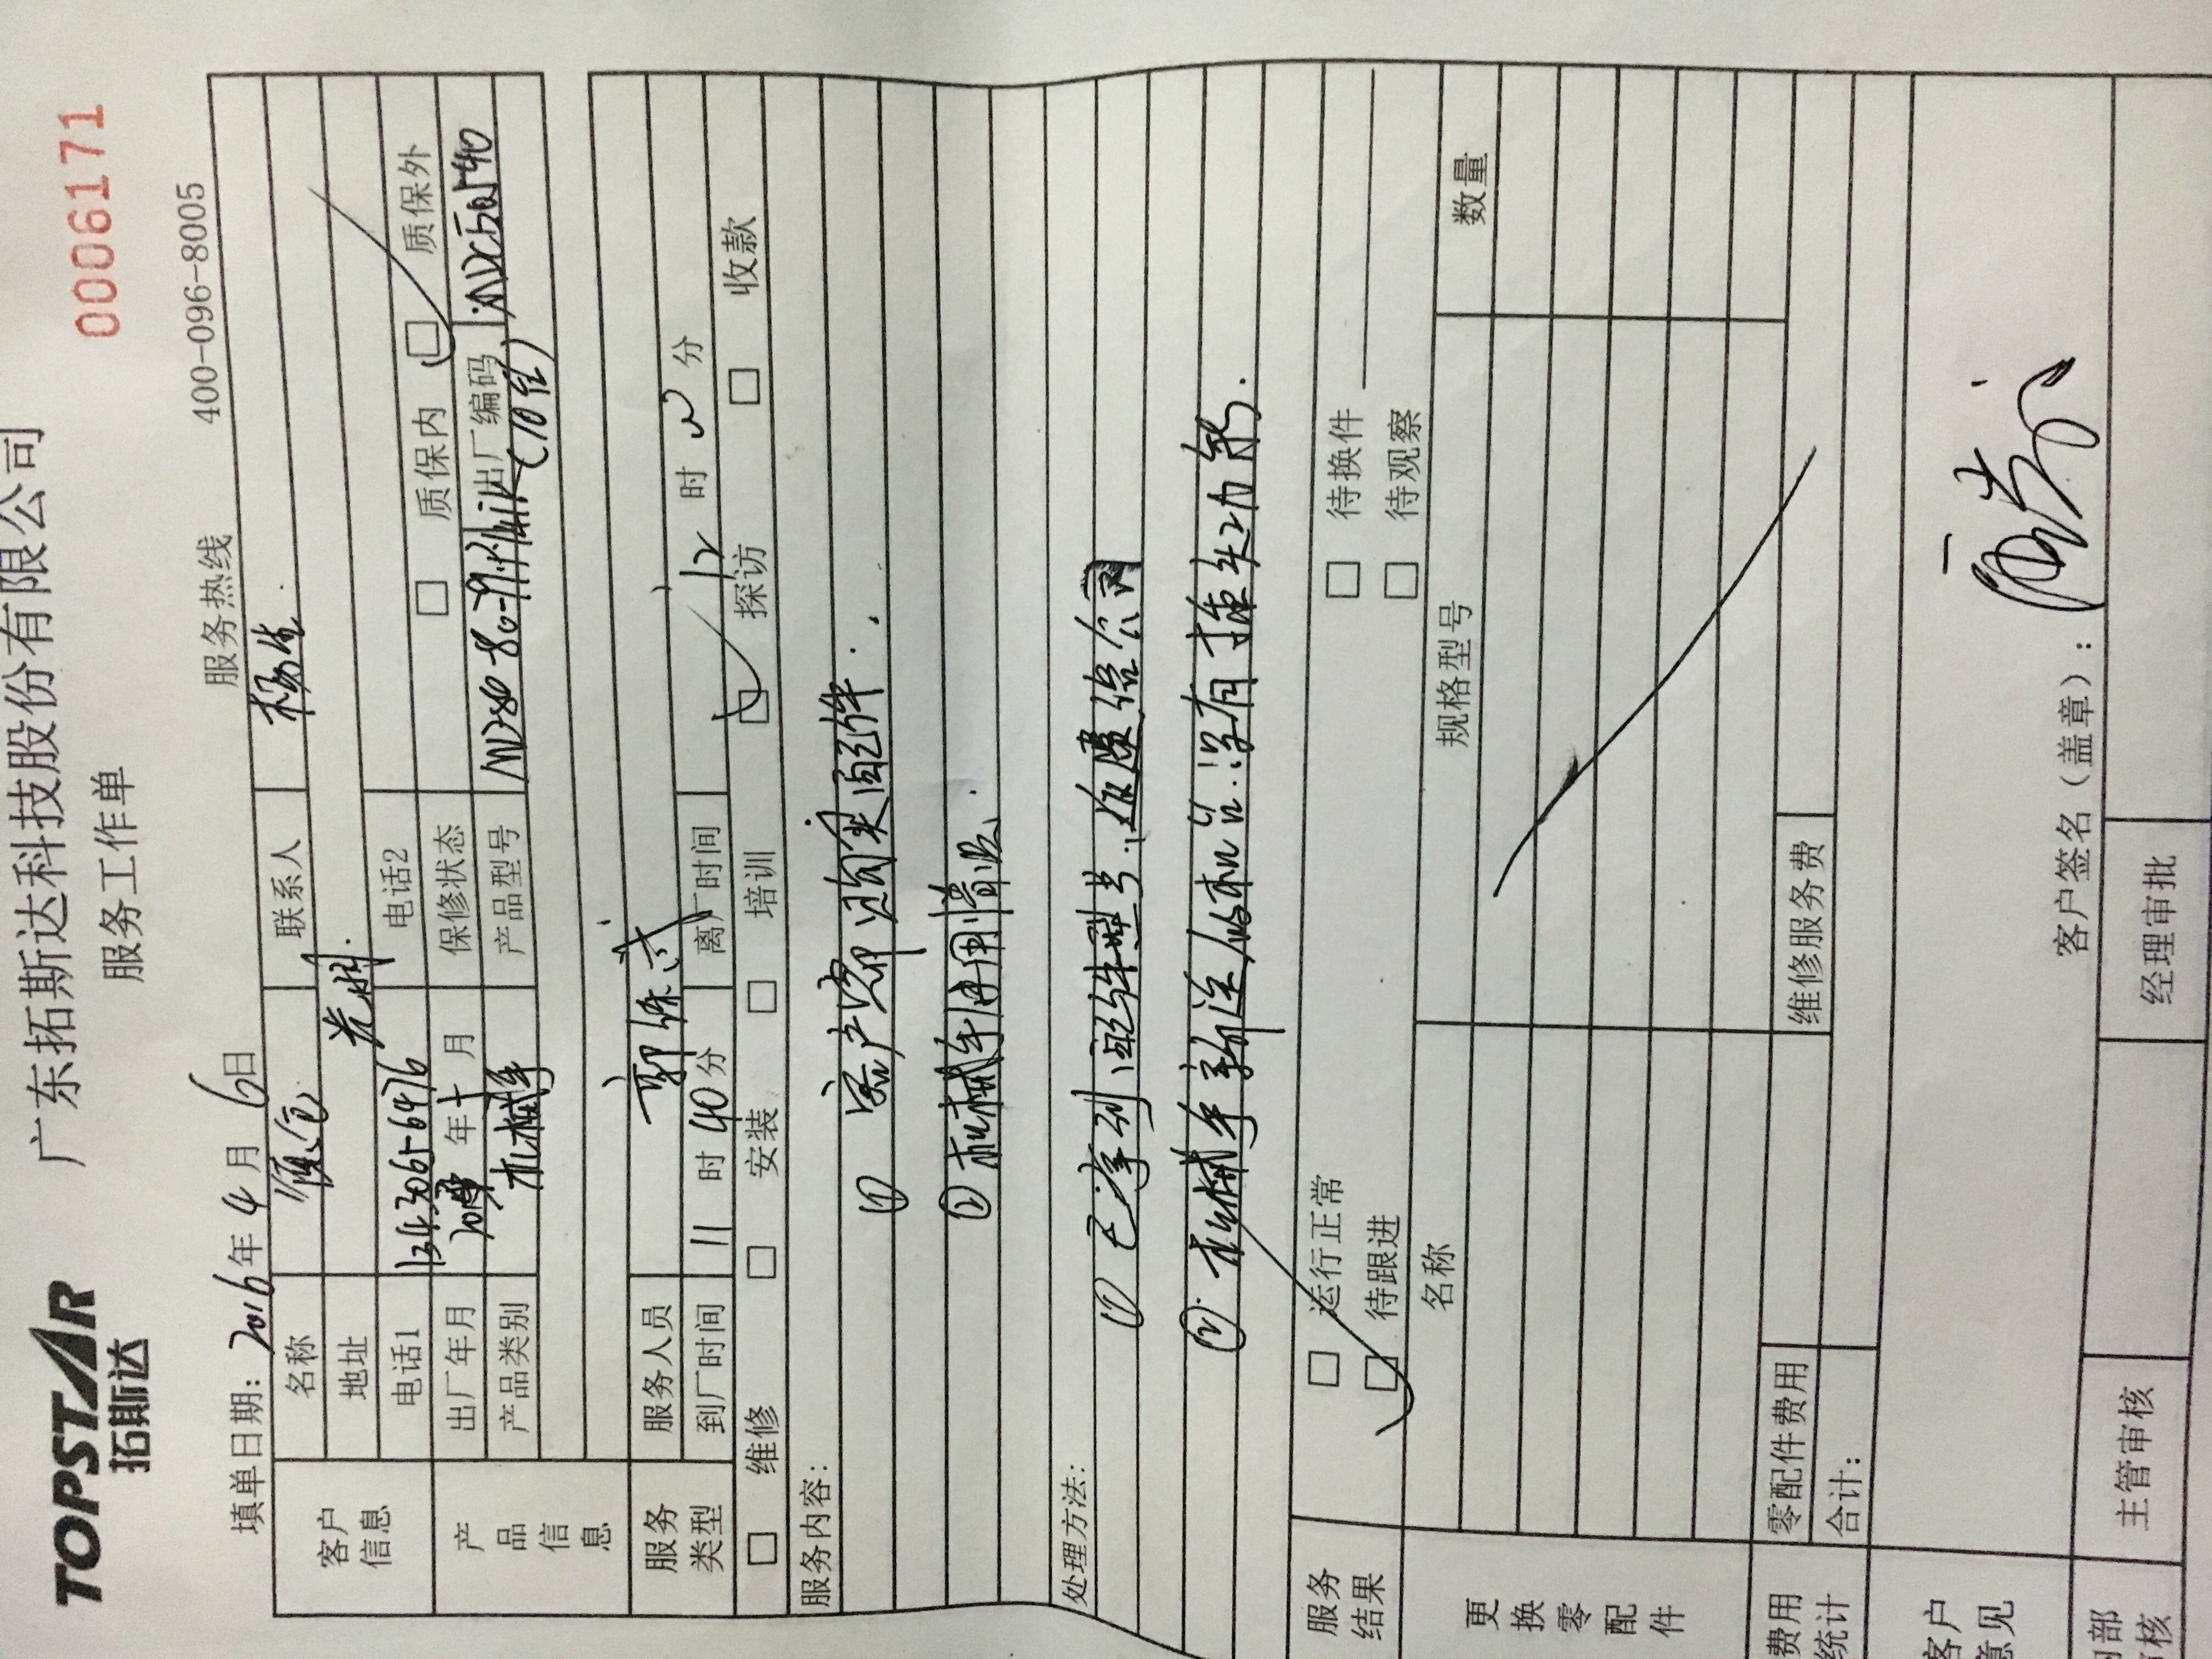 TOPSTAR
拓斯达
广东拓斯达科技股份有限公司
服务工作单
0006171
填单日期：2016年4月6日
服务热线 400-096-8005
客户信息
名称
联系人 杨生
地址
电话1
电话2
产品信息
出厂年月 年 月
保修状态 质保内 质保外
产品类别 机械手
产品型号
出厂编码
(10台)
服务类型
服务人员 郭
到厂时间 11时40分
离厂时间 12时 分
维修 安装 培训 探访 收款
服务内容：
① 客户需购买配件.
② 机械手使用情况.
处理方法：
① 已拿到配件型号, 反馈给公司
② 机械手新注
服务结果
运行正常 待换件
待跟进 待观察
更换零配件
名称 规格型号 数量
费用统计
零配件费用 维修服务费
合计：
客户意见
客户签名（盖章）：
主管审核 经理审批